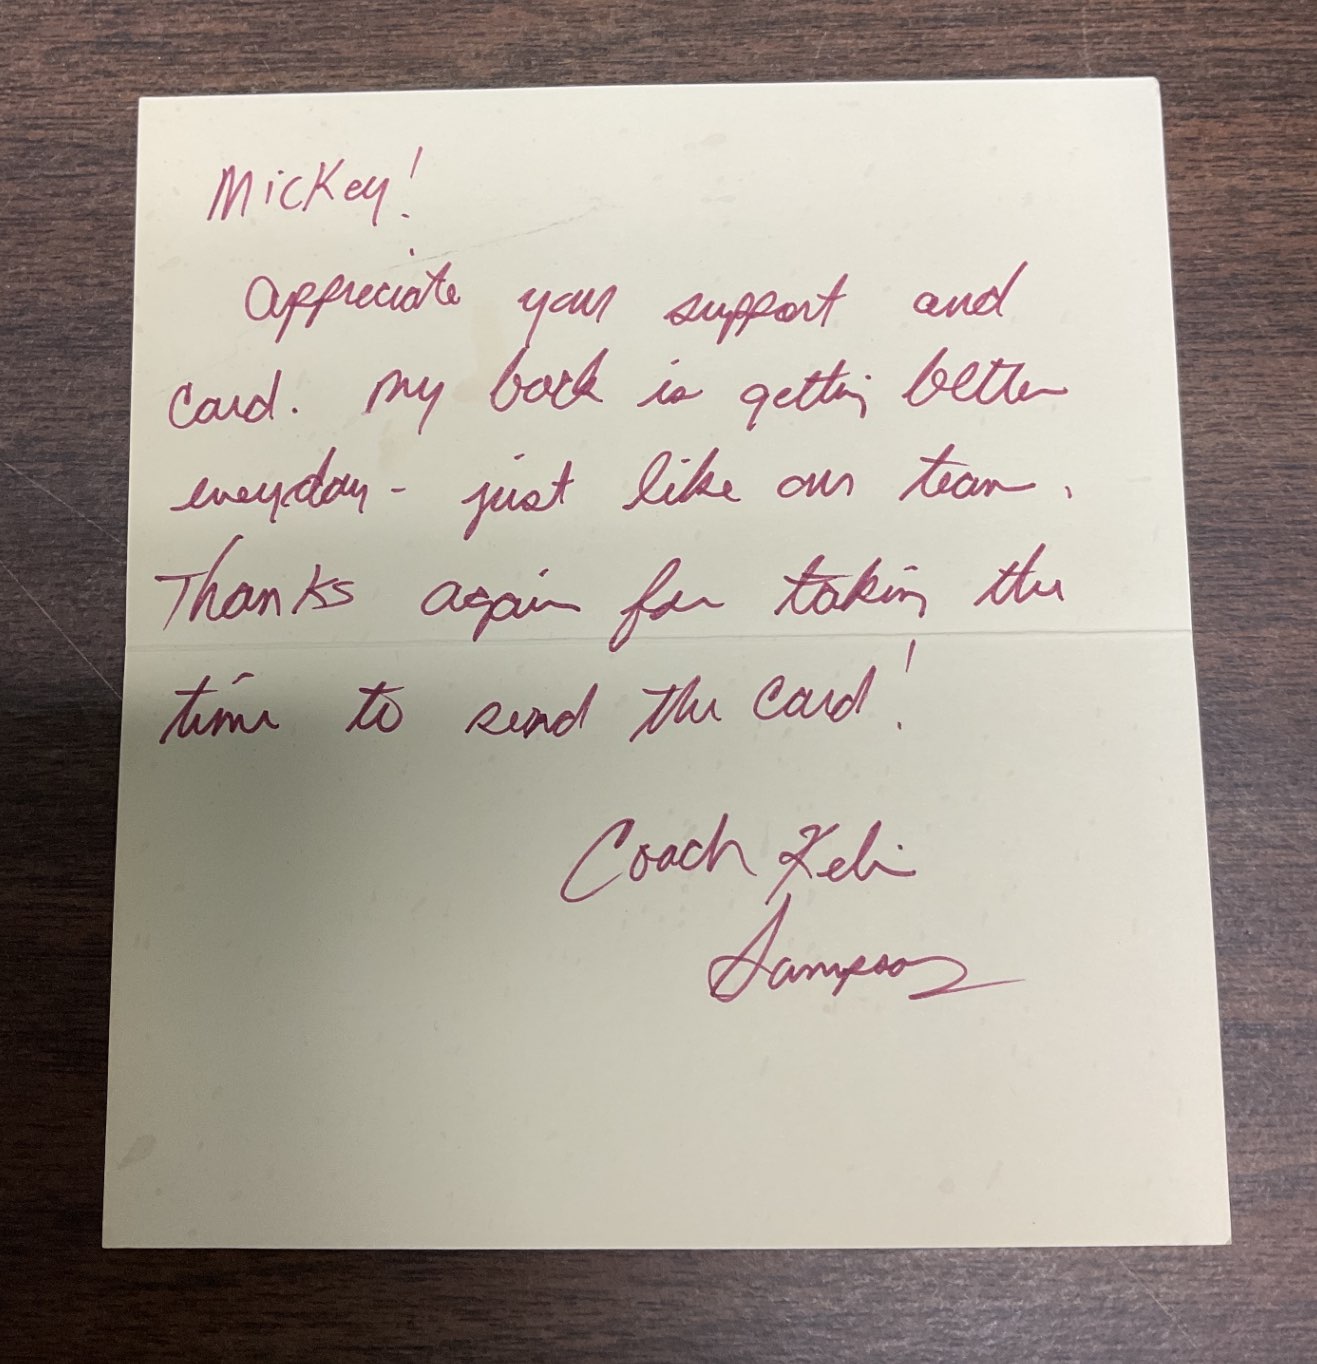 Mickey!
Appreciate your support and
card. My back is getting better
everyday - just like our team.
Thanks again for taking the
time to send the card!
Coach Kelvin
Sampson